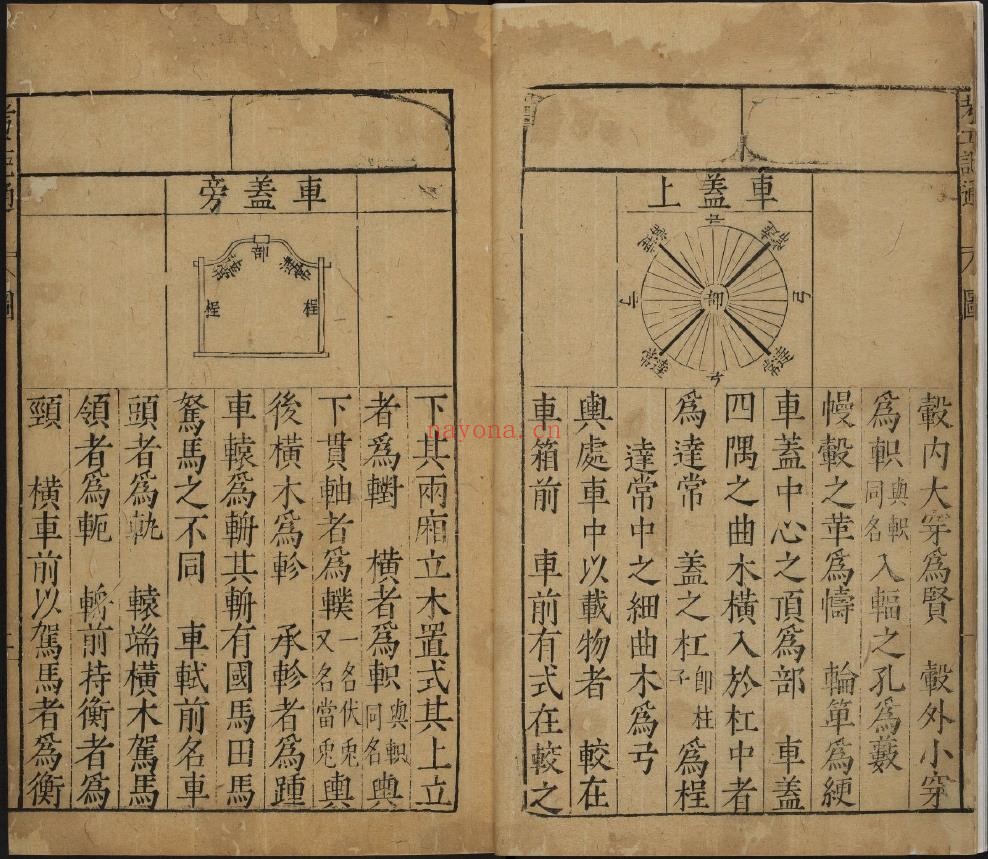 車蓋上
弓
達常
達常
弓
部
弓
達常
達常
弓
轂内大穿爲賢　轂外小穿
爲軹與軹同名入輻之孔爲藪
幔轂之革爲幬　輪箄爲綆
車蓋中心之頂爲部　車蓋
四隅之曲木橫入於杠中者
爲達常　蓋之杠即柱子爲桯
達常中之細曲木爲弓
輿處車中以載物者　較在
車箱前　車前有式在較之
考工記通
圖
車蓋旁
部
達常
達常
桯
桯
下其兩廂立木置式其上立
者爲轛　橫者爲軹與軹同名輿
下貫軸者爲轐一名伏兎又名當兎輿
後橫木爲軫　承軫者爲踵
車轅爲輈其輈有國馬田馬
駑馬之不同　車軾前名車
頭者爲軓　轅端橫木駕馬
領者爲軛　輈前持衡者爲
頸　橫車前以駕馬者爲衡
nayona.cn